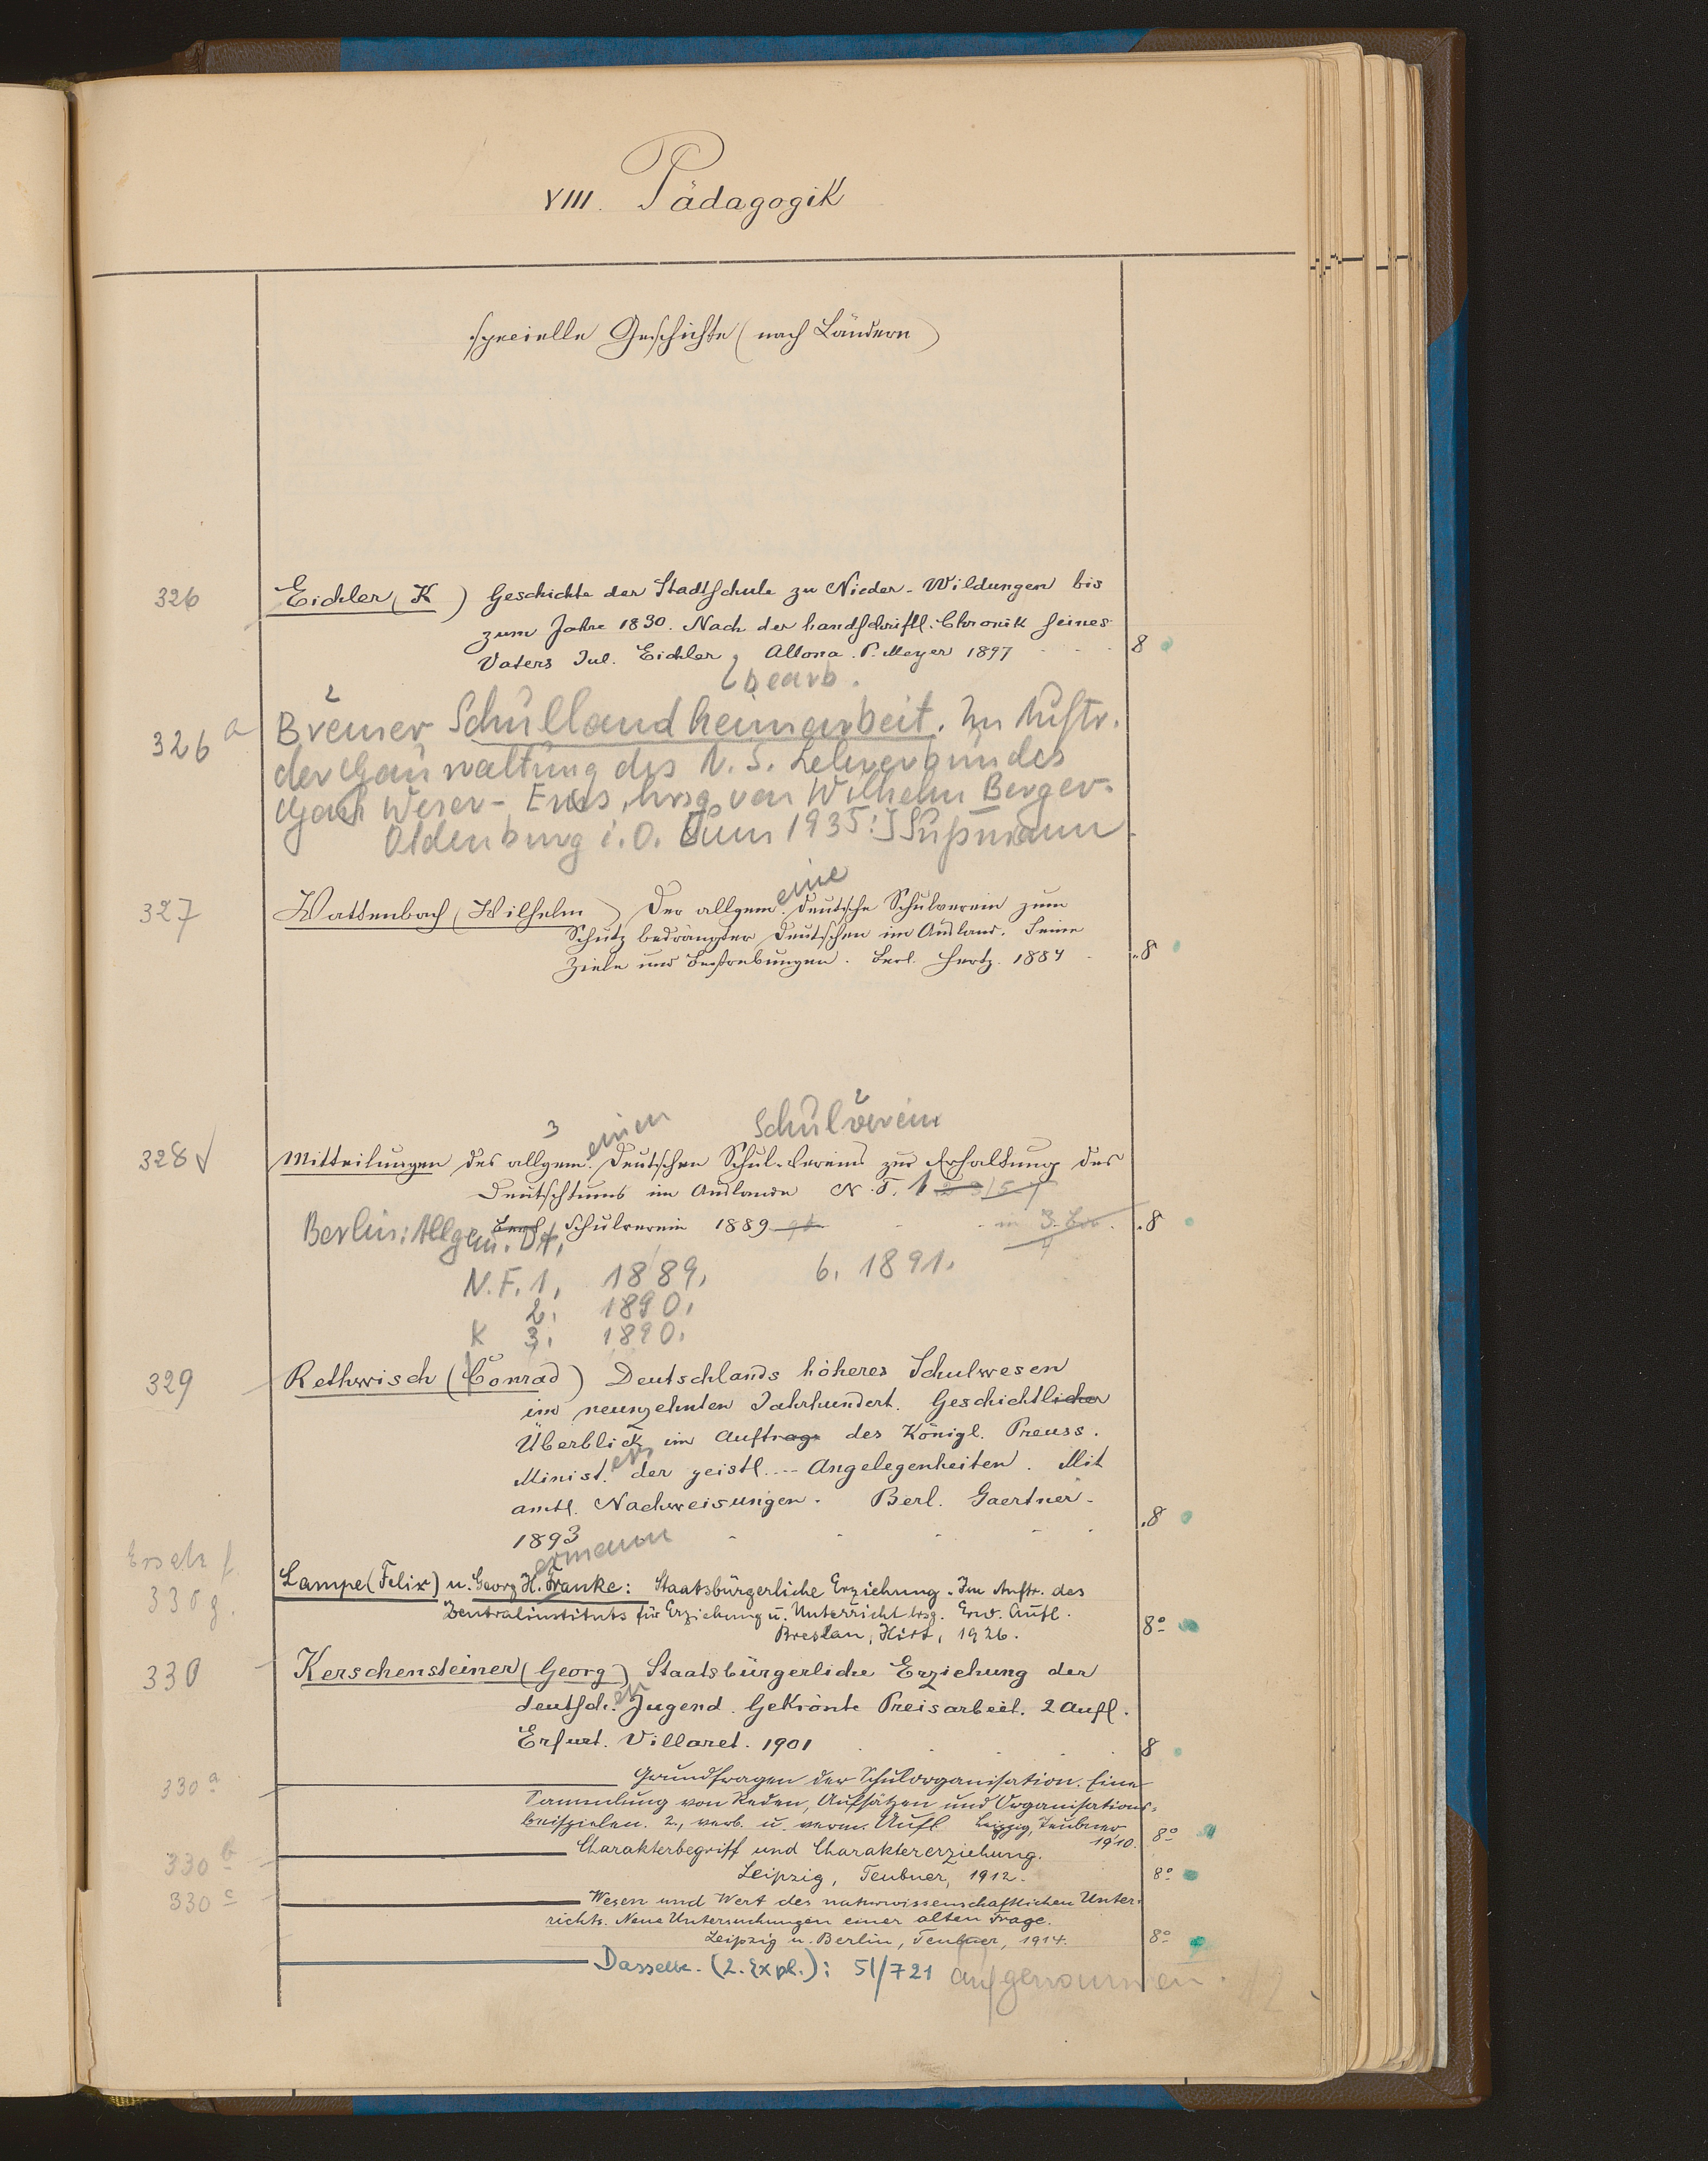 VIII. Pädagogik
specielle Geschichte (nach Ländern)
326 Eichler (K ) Geschichte der Stadtschule zu Nieder-Wildungen bis
zum Jahre 1830. Nach der handschriftl. Chronik seines
Vaters Jul. Eichler, Altona. P. Meyer 1897 8
bearb.
326 a Bremer Schullandheimarbeit. Im Auftr.
der Gauwaltung des N. S. Lehrerbundes
Gau Weser-Ems, hrsg. von Wilhelm Berger.
Oldenburg i. O. [um 1935:] Sußmann
eine
327 Wattenbach (Wilhelm ) Der allgem. deutsche Schulverein zum
Schutz bedrängter Deutschen im Ausland. Seine
Ziele und Bestrebungen. Berl. Hertz. 1884 8
3 einen Schulverein
328 Mitteilungen des allgem. Deutschen Schul-Vereins zur Erhaltung des
Deutschtums im Auslande N. F. 1 2 3/5 7
Berl. Schulverein 1889 in 3. Bd. 8
Berlin: Allgem. Dt.
N.F. 1, 1889, 6, 1891.
2. 1890.
K 3. 1890.
329 Rethwisch (Conrad ) Deutschlands höheres Schulwesen
im neunzehnten Jahrhundert. Geschichtlicher
Überblick im Auftrage des Königl. Preuss.
Minist. der geistl. --- Angelegenheiten. Mit
amtl. Nachweisungen. Berl. Gaertner.
1893 8
ermann
Ersetz f.
330g.
Lampe (Felix) u. Georg H. Franke: Staatsbürgerliche Erziehung. Im Auftr. des
Zentralinstituts für Erziehung u. Unterricht hrsg. Erw. Aufl.
Breslau, Hirt, 1926. 8°
330 Kerschensteiner (Georg ) Staatsbürgerliche Erziehung der
deutsch. en Jugend. Gekrönte Preisarbeit. 2 Aufl.
Erfurt. Villaret. 1901 8
330 a Grundfragen der Schulorganisation. Eine
Sammlung von Reden, Aufsätzen und Organisations-
beispielen. 2., verb. u. verm. Aufl. Leipzig, Teubner
1910. 8°
330 b Charakterbegriff und Charaktererziehung.
Leipzig, Teubner, 1912. 8°
330 c Wesen und Wert des naturwissenschaftlichen Unter-
richts. Neue Untersuchungen einer alten Frage.
Leipzig u. Berlin, Teubner, 1914. 8°
Dasselbe. (2. Expl.): 51/721 aufgenommen.